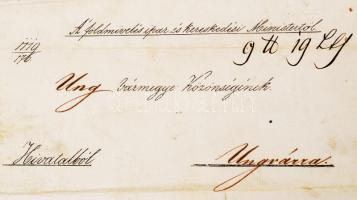 A földmivelés ipar és kereskedési Ministertől
9 tt 19
Ung vármegye Közönségének
Hivatalból.
Ungvárra.